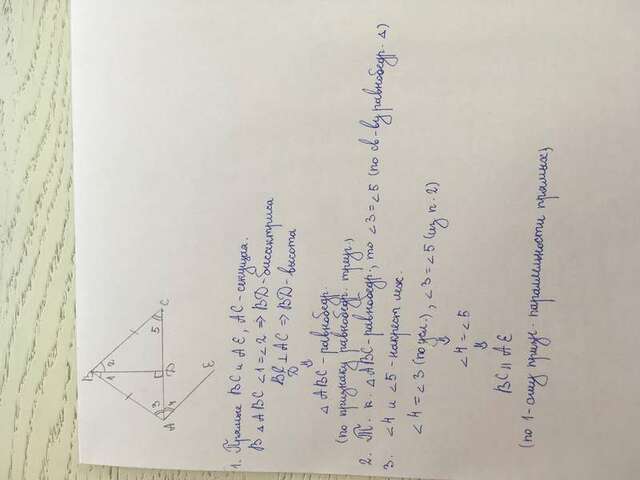 B
1 2
3
4
5
A
D
C
E
1. Прямые BC и AE, AC - секущая.
В △ ABC ∠1=∠2 ⇒ BD - биссектриса
BD ⊥ AC ⇒ BD - высота
⇓
△ ABC - равнобедр.
(по признаку равнобедр. треуг.)
2. Т. к. △ ABC - равнобедр., то ∠3=∠5 (по св-ву равнобедр. △)
3. ∠4 и ∠5 - накрест леж.
∠4=∠3 (по усл.), ∠3=∠5 (из п. 2)
⇓
∠4=∠5
⇓
BC || AE
(по 1-ому призн. параллельности прямых)